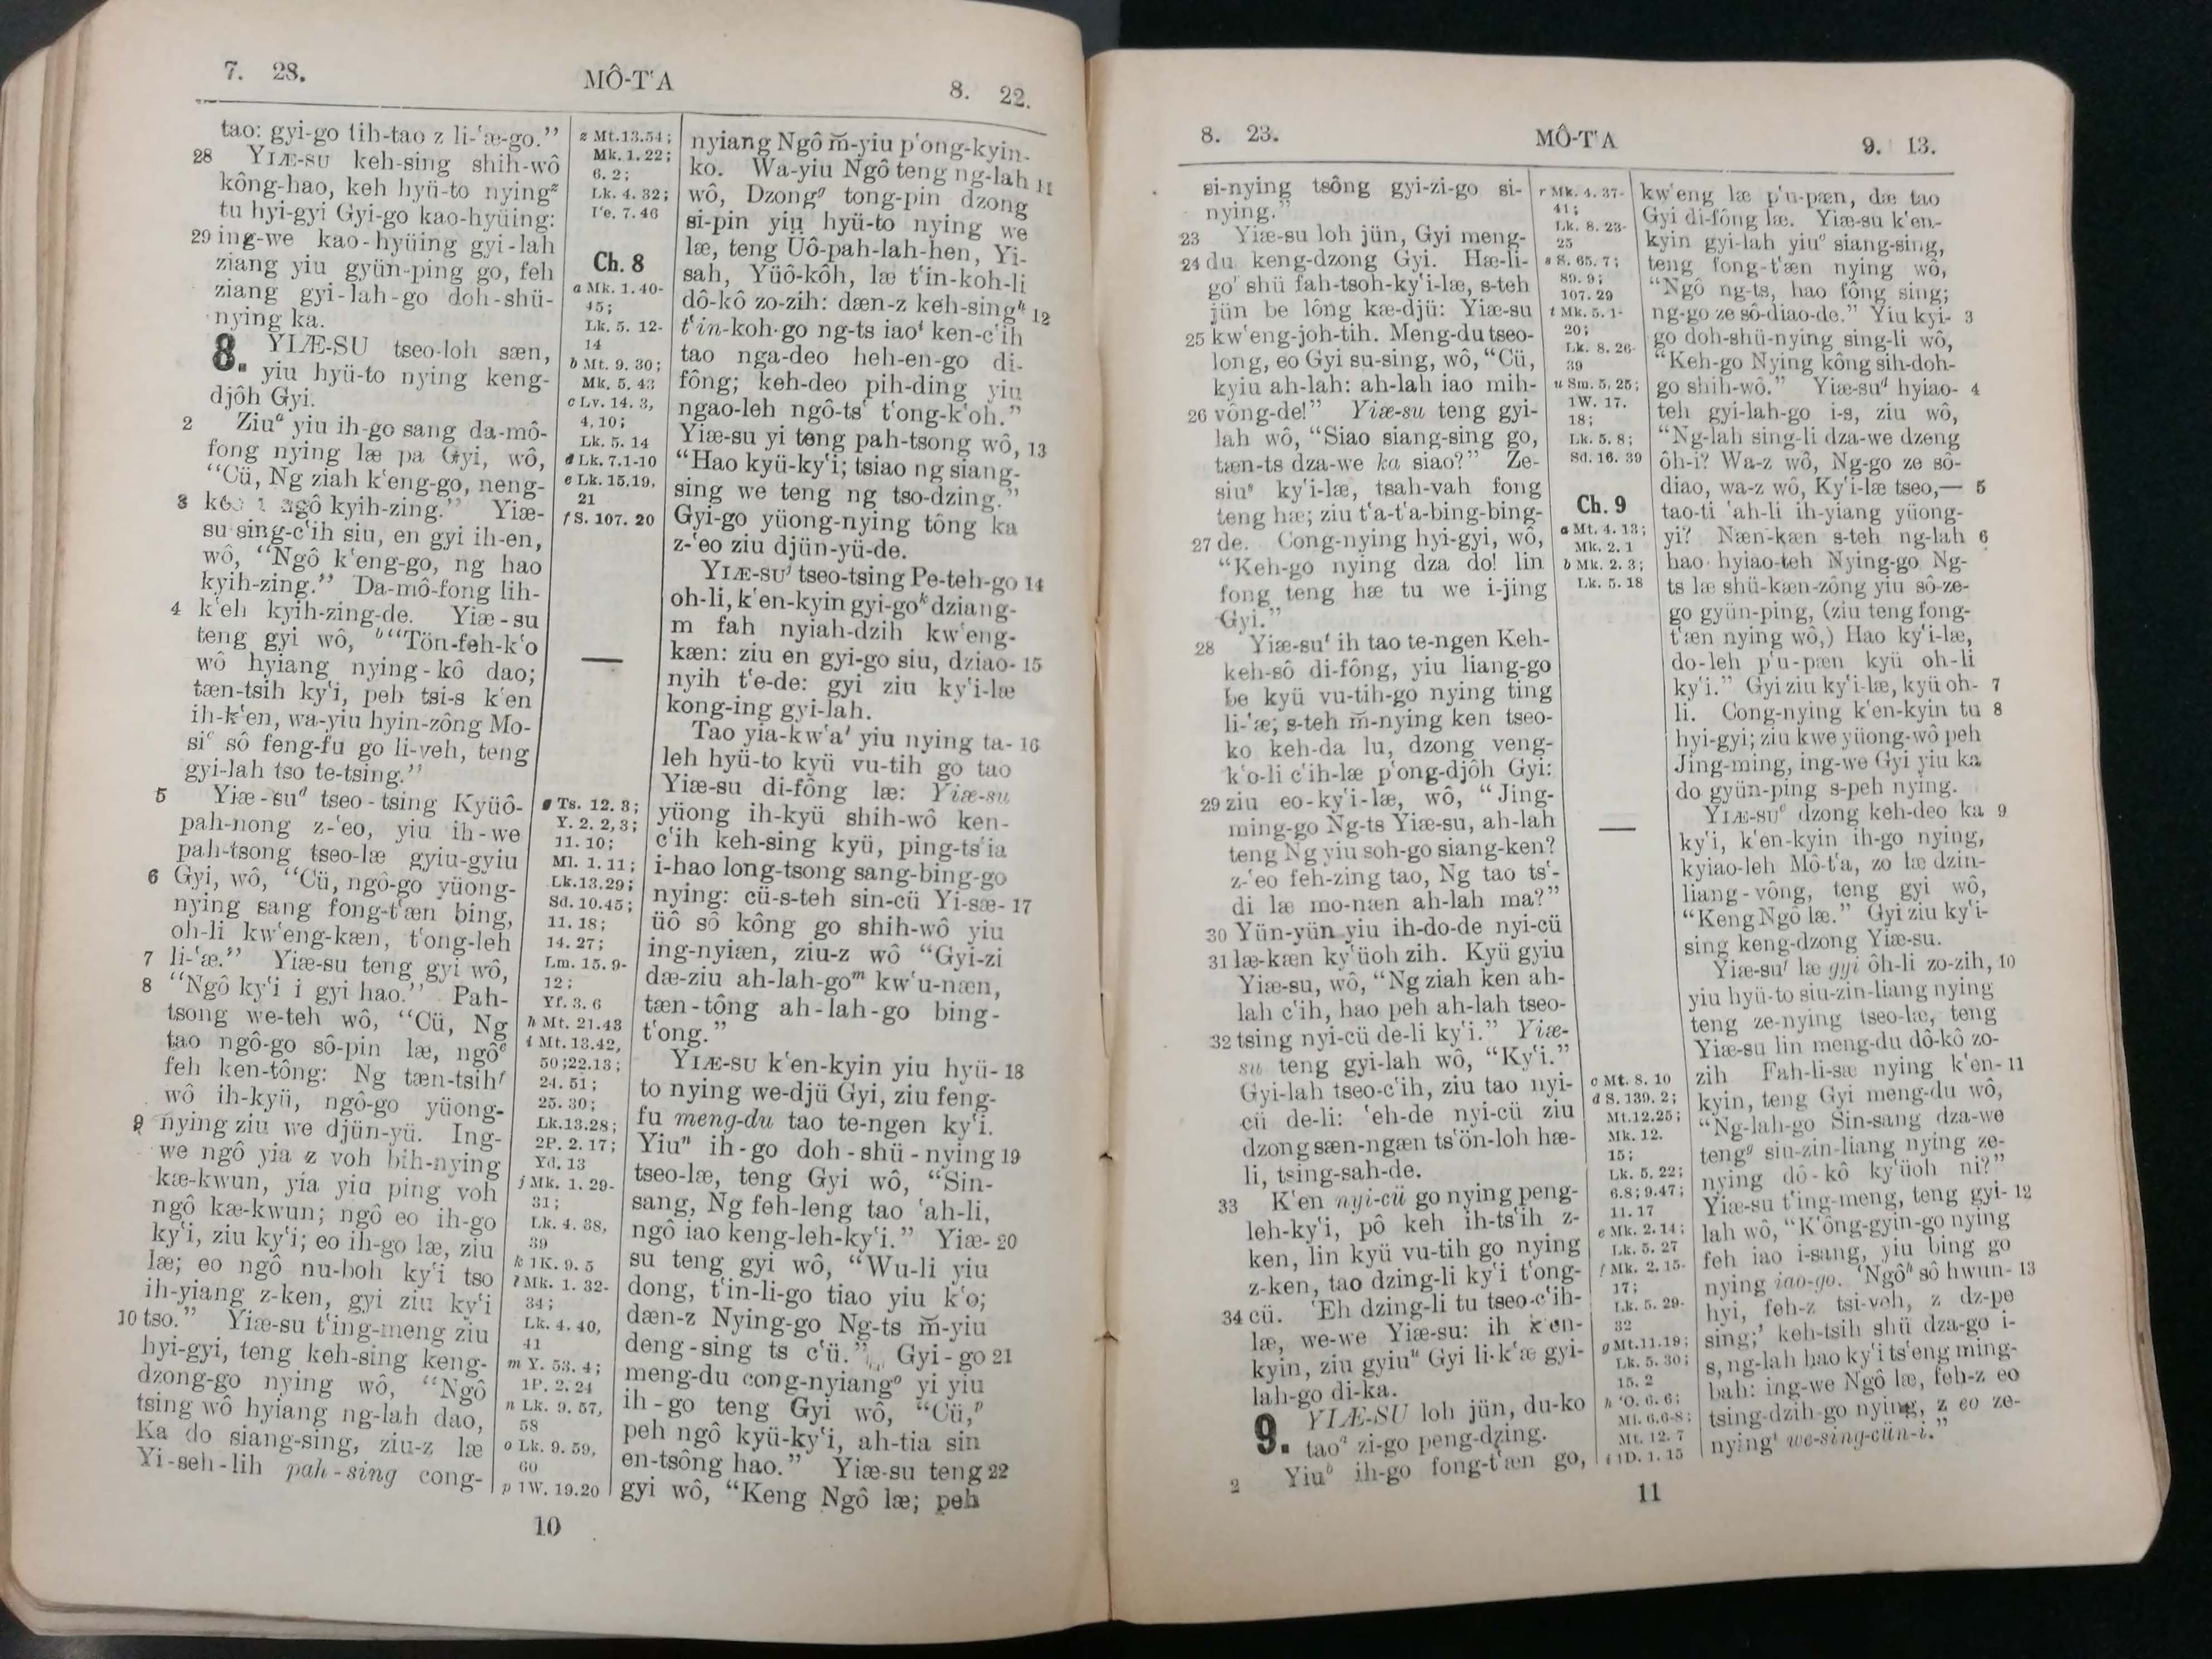 7. 28.
MÔ-TʻA
8. 22.
tao: gyi-go tih-tao z li-ʻæ-go.”
28 YIÆ-SU keh-sing shih-wô
kông-hao, keh hyü-to nyingᶻ
tu hyi-gyi Gyi-go kao-hyüing:
29 ing-we kao-hyüing gyi-lah
ziang yiu gyün-ping go, feh
ziang gyi-lah-go doh-shü-
nying ka.
8. YIÆ-SU tseo-loh sæn,
yiu hyü-to nying keng-
djôh Gyi.
2 Ziuᵃ yiu ih-go sang da-mô-
fong nying læ pa Gyi, wô,
“Cü, Ng ziah kʻeng-go, neng-
3 ngô kyih-zing.” Yiæ-
su sing-cʻih siu, en gyi ih-en,
wô, “Ngô kʻeng-go, ng hao
kyih-zing.” Da-mô-fong lih-
4 kʻeh kyih-zing-de. Yiæ-su
teng gyi wô, ᵇ“Tön-feh-kʻo
wô hyiang nying-kô dao;
tæn-tsih kyʻi, peh tsi-s kʻen
ih-kʻen, wa-yiu hyin-zông Mo-
siᶜ sô feng-fu go li-veh, teng
gyi-lah tso te-tsing.”
5 Yiæ-suᵈ tseo-tsing Kyüô-
pah-nong z-ʻeo, yiu ih-we
pah-tsong tseo-læ gyiu-gyiu
6 Gyi, wô, “Cü, ngô-go yüong-
nying sang fong-tʻæn bing,
oh-li kwʻeng-kæn, tʻong-leh
7 li-ʻæ.” Yiæ-su teng gyi wô,
8 “Ngô kyʻi i gyi hao.” Pah-
tsong we-teh wô, “Cü, Ng
tao ngô-go sô-pin læ, ngôᵉ
feh ken-tông: Ng tæn-tsihᶠ
wô ih-kyü, ngô-go yüong-
9 nying ziu we djün-yü. Ing-
we ngô yia z voh bih-nying
kæ-kwun, yia yiu ping voh
ngô kæ-kwun; ngô eo ih-go
kyʻi, ziu kyʻi; eo ih-go læ, ziu
læ; eo ngô nu-boh kyʻi tso
ih-yiang z-ken, gyi ziu kyʻi
10 tso.” Yiæ-su tʻing-meng ziu
hyi-gyi, teng keh-sing keng-
dzong-go nying wô, “Ngô
tsing wô hyiang ng-lah dao,
Ka do siang-sing, ziu-z læ
Yi-seh-lih pah-sing cong-
z Mt.13.54;
Mk. 1. 22;
6. 2;
Lk. 4. 32;
Iʻe. 7. 46
Ch. 8
a Mk. 1. 40-
45;
Lk. 5. 12-
14
b Mt. 9. 30;
Mk. 5. 43
c Lv. 14. 3,
4, 10;
Lk. 5. 14
d Lk. 7.1-10
e Lk. 15.19,
21
f S. 107. 20
g Ts. 12. 3;
Y. 2. 2,3;
11. 10;
Ml. 1. 11;
Lk.13.29;
Sd. 10.45;
11. 18;
14. 27;
Lm. 15. 9-
12;
Yf. 3. 6
h Mt. 21.43
i Mt. 13.42,
50;22.13;
24. 51;
25. 30;
Lk.13.28;
2P. 2. 17;
Yd. 13
j Mk. 1. 29-
31;
Lk. 4. 38,
39
k 1K. 9. 5
l Mk. 1. 32-
34;
Lk. 4. 40,
41
m Y. 53. 4;
1P. 2. 24
n Lk. 9. 57,
58
o Lk. 9. 59,
60
p 1W. 19.20
nyiang Ngô m̆-yiu pʻong-kyin-
ko. Wa-yiu Ngô teng ng-lah 11
wô, Dzongᵍ tong-pin dzong
si-pin yiu hyü-to nying we
læ, teng Üô-pah-lah-hen, Yi-
sah, Yüô-kôh, læ tʻin-koh-li
dô-kô zo-zih: dæn-z keh-singʰ 12
tʻin-koh-go ng-ts iaoⁱ ken-cʻih
tao nga-deo heh-en-go di-
fông; keh-deo pih-ding yiu
ngao-leh ngô-tsʻ tʻong-kʻoh.”
Yiæ-su yi teng pah-tsong wô, 13
“Hao kyü-kyʻi; tsiao ng siang-
sing we teng ng tso-dzing.”
Gyi-go yüong-nying tông ka
z-ʻeo ziu djün-yü-de.
YIÆ-SUʲ tseo-tsing Pe-teh-go 14
oh-li, kʻen-kyin gyi-goᵏ dziang-
m fah nyiah-dzih kwʻeng-
kæn: ziu en gyi-go siu, dziao- 15
nyih tʻe-de: gyi ziu kyʻi-læ
kong-ing gyi-lah.
Tao yia-kwʻaˡ yiu nying ta- 16
leh hyü-to kyü vu-tih go tao
Yiæ-su di-fông læ: Yiæ-su
yüong ih-kyü shih-wô ken-
cʻih keh-sing kyü, ping-tsʻia
i-hao long-tsong sang-bing-go
nying: cü-s-teh sin-cü Yi-sæ- 17
üô sô kông go shih-wô yiu
ing-nyiæn, ziu-z wô “Gyi-zi
dæ-ziu ah-lah-goᵐ kwʻu-næn,
tæn-tông ah-lah-go bing-
tʻong.”
YIÆ-SU kʻen-kyin yiu hyü- 18
to nying we-djü Gyi, ziu feng-
fu meng-du tao te-ngen kyʻi.
Yiuⁿ ih-go doh-shü-nying 19
tseo-læ, teng Gyi wô, “Sin-
sang, Ng feh-leng tao ʻah-li,
ngô iao keng-leh-kyʻi.” Yiæ- 20
su teng gyi wô, “Wu-li yiu
dong, tʻin-li-go tiao yiu kʻo;
dæn-z Nying-go Ng-ts m̆-yiu
deng-sing ts cʻü.” Gyi-go 21
meng-du cong-nyiangᵒ yi yiu
ih-go teng Gyi wô, “Cü,ᵖ
peh ngô kyü-kyʻi, ah-tia sin
en-tsông hao.” Yiæ-su teng 22
gyi wô, “Keng Ngô læ; peh
10
8. 23.
MÔ-TʻA
9. 13.
si-nying tsông gyi-zi-go si-
nying.”
23 Yiæ-su loh jün, Gyi meng-
24 du keng-dzong Gyi. Hæ-li-
goʳ shü fah-tsoh-kyʻi-læ, s-teh
jün be lông kæ-djü: Yiæ-su
25 kwʻeng-joh-tih. Meng-du tseo-
long, eo Gyi su-sing, wô, “Cü,
kyiu ah-lah: ah-lah iao mih-
26 vông-de!” Yiæ-su teng gyi-
lah wô, “Siao siang-sing go,
tæn-ts dza-we ka siao?” Ze-
siuˢ kyʻi-læ, tsah-vah fong
teng hæ; ziu tʻa-tʻa-bing-bing-
27 de. Cong-nying hyi-gyi, wô,
“Keh-go nying dza do! lin
fong teng hæ tu we i-jing
Gyi.”
28 Yiæ-suᵗ ih tao te-ngen Keh-
keh-sô di-fông, yiu liang-go
be kyü vu-tih-go nying ting
li-ʻæ; s-teh m̆-nying ken tseo-
ko keh-da lu, dzong veng-
kʻo-li cʻih-læ pʻong-djôh Gyi:
29 ziu eo-kyʻi-læ, wô, “Jing-
ming-go Ng-ts Yiæ-su, ah-lah
teng Ng yiu soh-go siang-ken?
z-ʻeo feh-zing tao, Ng tao tsʻ-
di læ mo-næn ah-lah ma?”
30 Yün-yün yiu ih-do-de nyi-cü
31 læ-kæn kyʻüoh zih. Kyü gyiu
Yiæ-su, wô, “Ng ziah ken ah-
lah cʻih, hao peh ah-lah tseo-
32 tsing nyi-cü de-li kyʻi.” Yiæ-
su teng gyi-lah wô, “Kyʻi.”
Gyi-lah tseo-cʻih, ziu tao nyi-
cü de-li: ʻeh-de nyi-cü ziu
dzong sæn-ngæn tsʻön-loh hæ-
li, tsing-sah-de.
33 Kʻen nyi-cü go nying peng-
leh-kyʻi, pô keh ih-tsʻih z-
ken, lin kyü vu-tih go nying
z-ken, tao dzing-li kyʻi tʻong-
34 cü. ʻEh dzing-li tu tseo-cʻih-
læ, we-we Yiæ-su: ih kʻen-
kyin, ziu gyiuᵘ Gyi li-kʻæ gyi-
lah-go di-ka.
9. YIÆ-SU loh jün, du-ko
taoᵃ zi-go peng-dzing.
2 Yiuᵇ ih-go fong-tʻæn go,
r Mk. 4. 37-
41;
Lk. 8. 23-
25
s S. 65. 7;
89. 9;
107. 29
t Mk. 5. 1-
20;
Lk. 8. 26-
39
u Sm. 5. 25;
1W. 17.
18;
Lk. 5. 8;
Sd. 16. 39
Ch. 9
a Mt. 4. 13;
Mk. 2. 1
b Mk. 2. 3;
Lk. 5. 18
c Mt. 8. 10
d S. 139. 2;
Mt.12.25;
Mk. 12.
15;
Lk. 5. 22;
6.8; 9.47;
11. 17
e Mk. 2. 14;
Lk. 5. 27
f Mk. 2. 15-
17;
Lk. 5. 29-
32
g Mt.11.19;
Lk. 5. 30;
15. 2
h ʻO. 6. 6;
Mi. 6.6-8;
Mt. 12. 7
i 1D. 1. 15
kwʻeng læ pʻu-pæn, dæ tao
Gyi di-fông læ. Yiæ-su kʻen-
kyin gyi-lah yiuᶜ siang-sing,
teng fong-tʻæn nying wô,
“Ngô ng-ts, hao fông sing;
ng-go ze sô-diao-de.” Yiu kyi- 3
go doh-shü-nying sing-li wô,
“Keh-go Nying kông sih-doh-
go shih-wô.” Yiæ-suᵈ hyiao- 4
teh gyi-lah-go i-s, ziu wô,
“Ng-lah sing-li dza-we dzeng
ôh-i? Wa-z wô, Ng-go ze sô-
diao, wa-z wô, Kyʻi-læ tseo,— 5
tao-ti ʻah-li ih-yiang yüong-
yi? Næn-kæn s-teh ng-lah 6
hao hyiao-teh Nying-go Ng-
ts læ shü-kæn-zông yiu sô-ze-
go gyün-ping, (ziu teng fong-
tʻæn nying wô,) Hao kyʻi-læ,
do-leh pʻu-pæn kyü oh-li
kyʻi.” Gyi ziu kyʻi-læ, kyü oh- 7
li. Cong-nying kʻen-kyin tu 8
hyi-gyi; ziu kwe yüong-wô peh
Jing-ming, ing-we Gyi yiu ka
do gyün-ping s-peh nying.
YIÆ-SUᵉ dzong keh-deo ka 9
kyʻi, kʻen-kyin ih-go nying,
kyiao-leh Mô-tʻa, zo læ dzin-
liang-vông, teng gyi wô,
“Keng Ngô læ.” Gyi ziu kyʻi-
sing keng-dzong Yiæ-su.
Yiæ-suᶠ læ gyi ôh-li zo-zih, 10
yiu hyü-to siu-zin-liang nying
teng ze-nying tseo-læ, teng
Yiæ-su lin meng-du dô-kô zo-
zih Fah-li-sæ nying kʻen- 11
kyin, teng Gyi meng-du wô,
“Ng-lah-go Sin-sang dza-we
tengᵍ siu-zin-liang nying ze-
nying dô-kô kyʻüoh ni?”
Yiæ-su tʻing-meng, teng gyi- 12
lah wô, “Kʻông-gyin-go nying
feh iao i-sang, yiu bing go
nying iao-go. ʻNgôʰ sô hwun- 13
hyi, feh-z tsi-veh, z dz-pe
sing;ʼ keh-tsih shü dza-go i-
s, ng-lah hao kyʻi tsʻeng ming-
bah: ing-we Ngô læ, feh-z eo
tsing-dzih-go nying, z eo ze-
nyingⁱ we-sing-cün-i.”
11